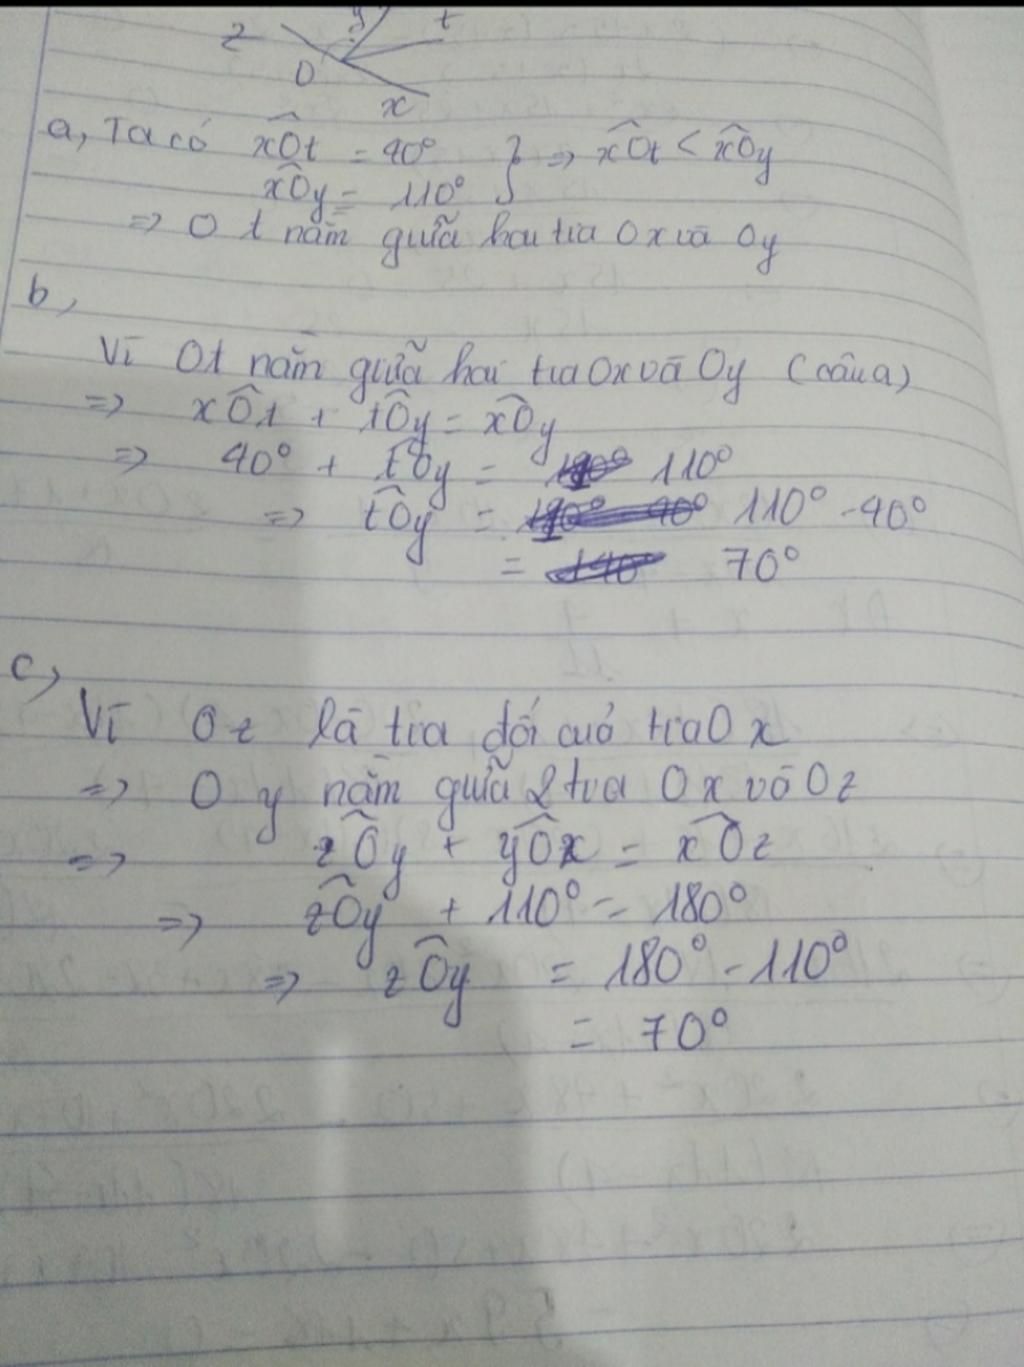 z y t
O
x
a, Ta có xÔt = 40° } => xÔt < xÔy
xÔy = 110°
=> Ot nằm giữa hai tia Ox và Oy
b,
Vì Ot nằm giữa hai tia Ox và Oy (câu a)
=> xÔt + tÔy = xÔy
=> 40° + tÔy = 110°
=> tÔy = 110° - 40°
= 70°
c,
Vì Oz là tia đối cuả tia Ox
=> Oy nằm giữa 2 tia Ox và Oz
=> zÔy + yÔx = xÔz
=> zÔy + 110° = 180°
=> zÔy = 180° - 110°
= 70°